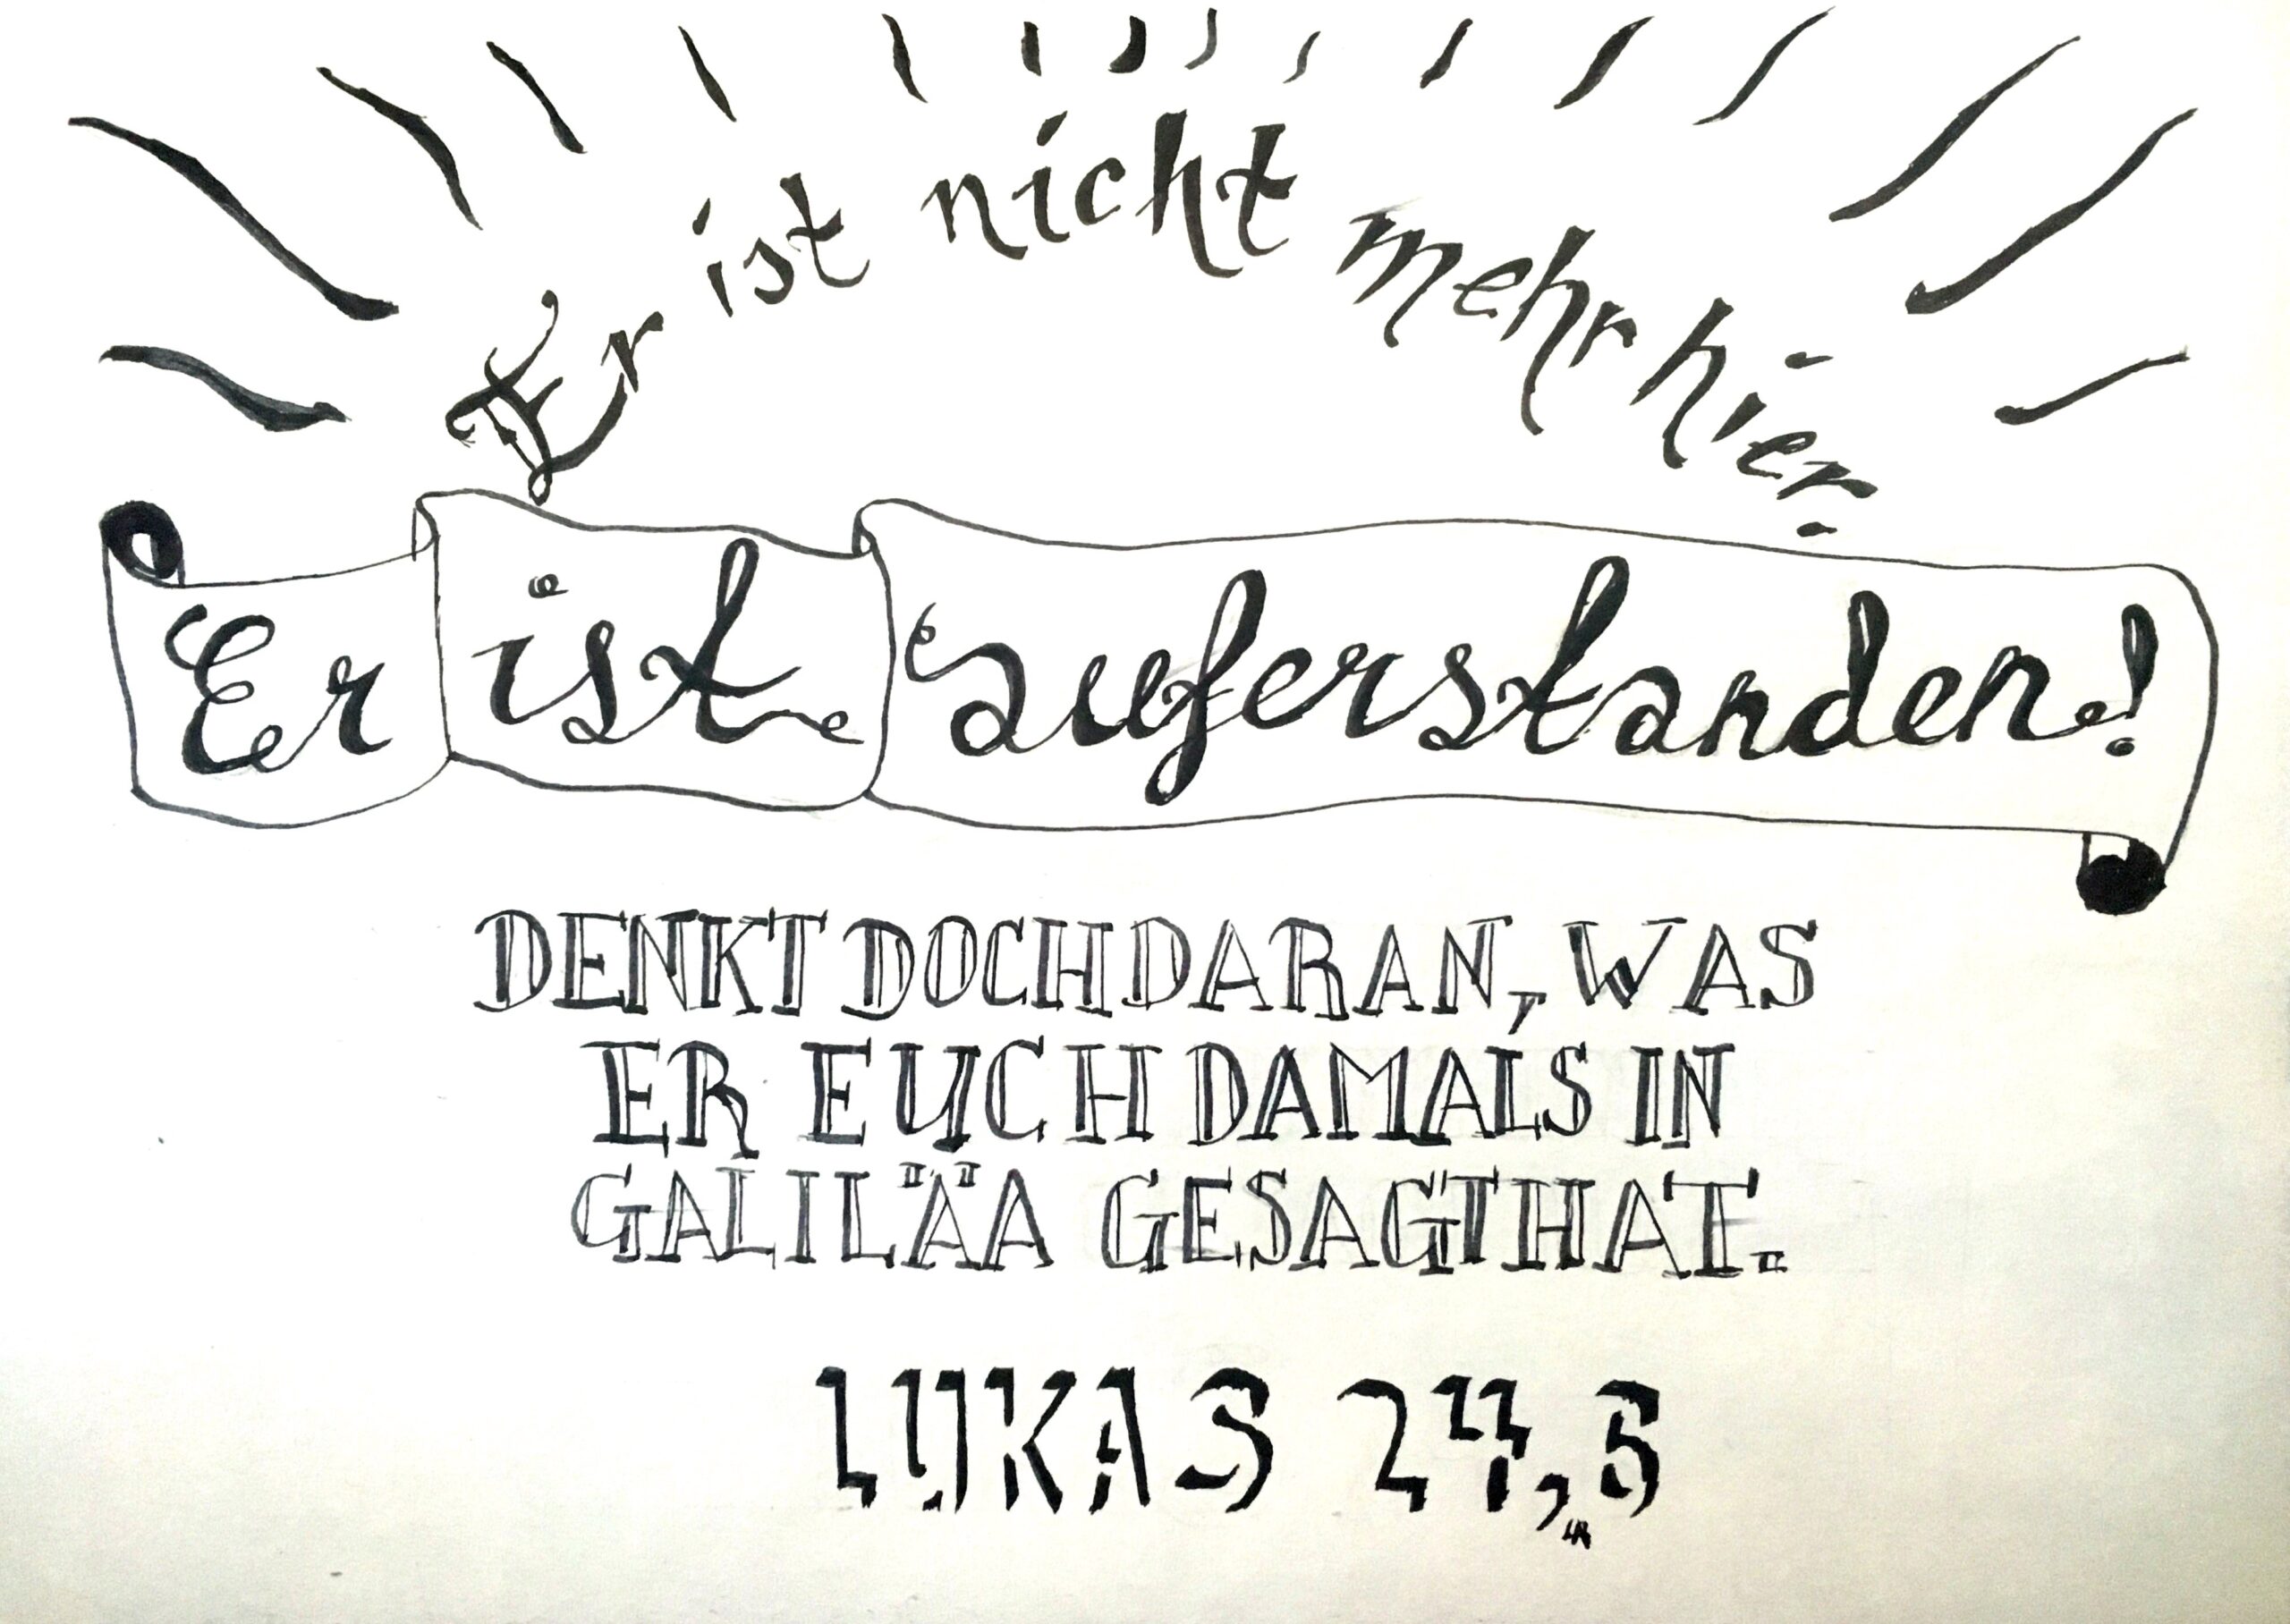 Er ist nicht mehr hier.
Er ist auferstanden!
DENKT DOCH DARAN, WAS
ER EUCH DAMALS IN
GALILÄA GESAGT HAT.
LUKAS 24,6